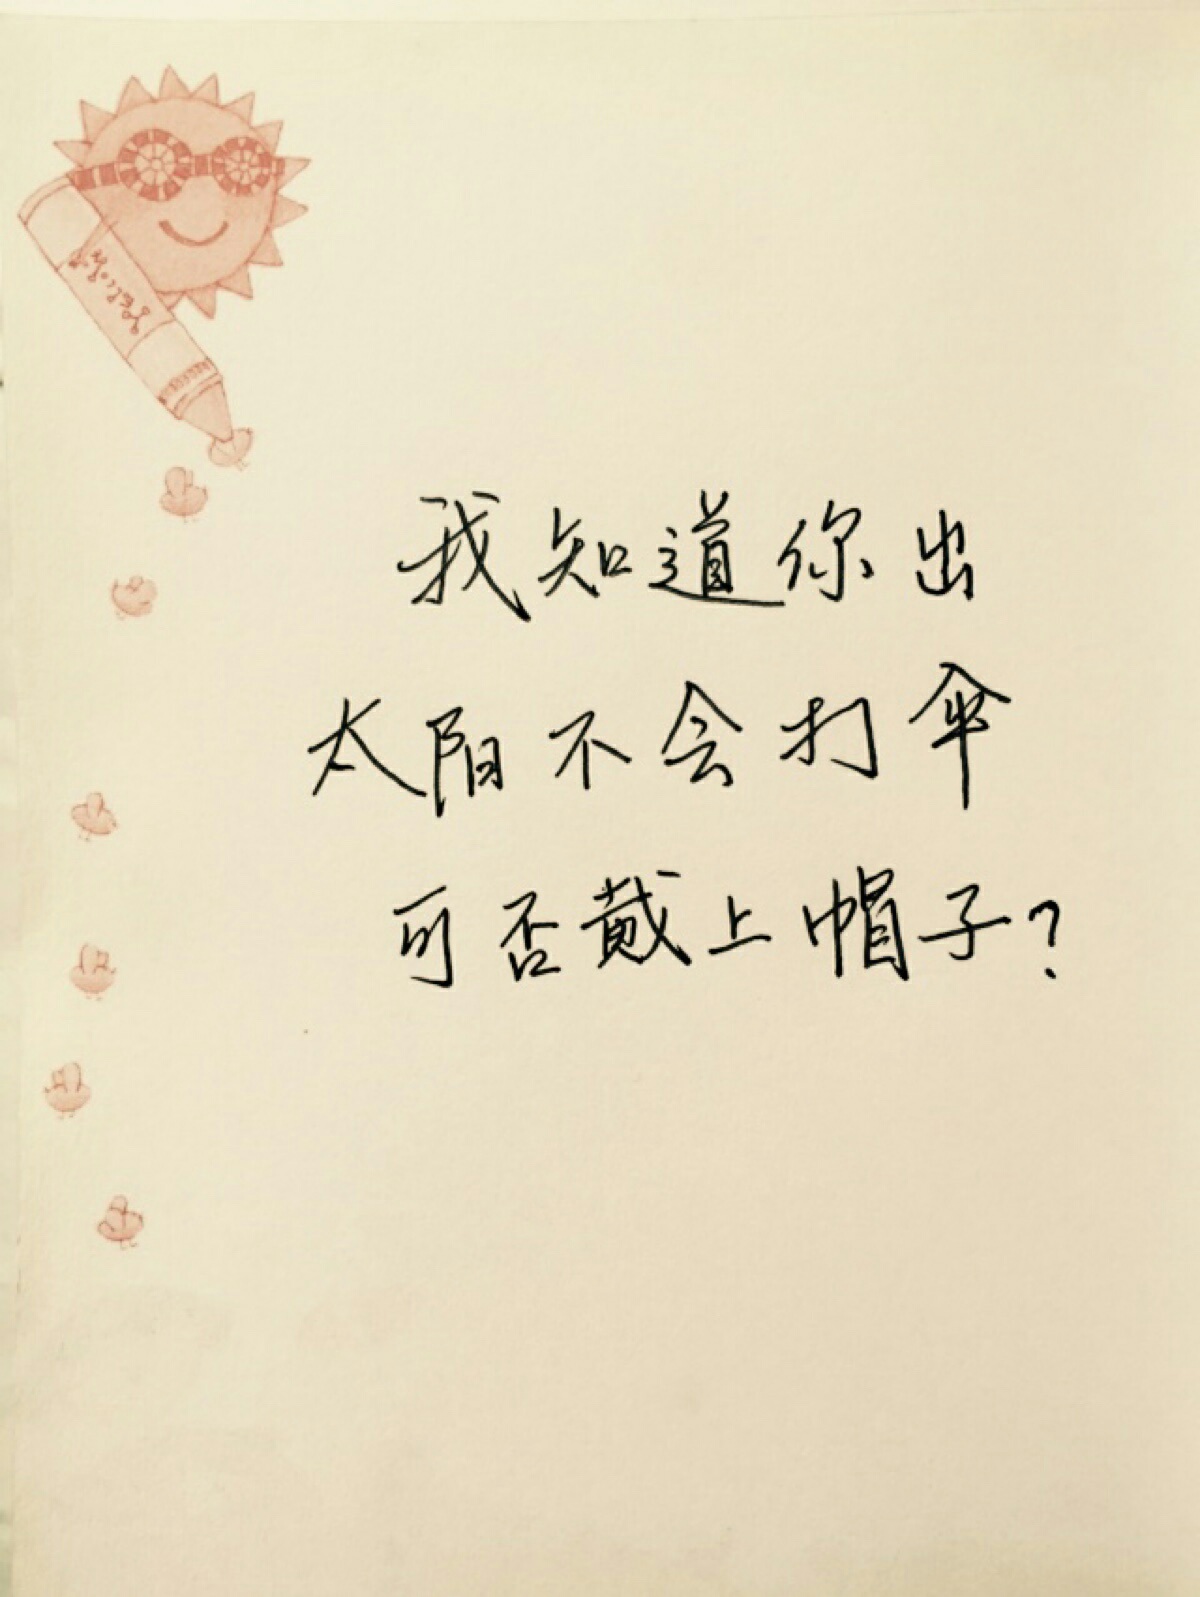 我知道你出
太阳不会打伞
可否戴上帽子?